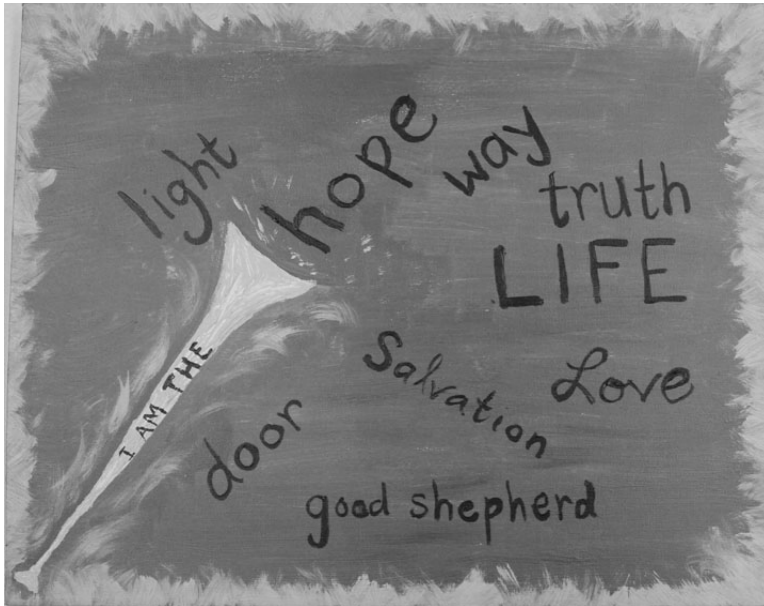 I AM THE
light
hope
way
truth
LIFE
Salvation
Love
door
good shepherd